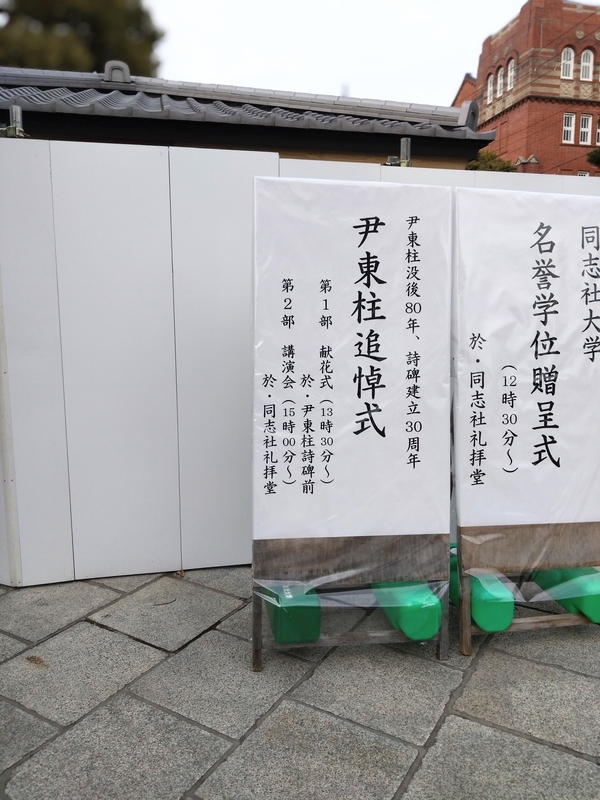 同志社大学
名誉学位贈呈式
（12時30分～）
於・同志社礼拝堂
尹東柱没後80年、詩碑建立30周年
尹東柱追悼式
第1部　献花式（13時30分～）
於・尹東柱詩碑前
第2部　講演会（15時00分～）
於・同志社礼拝堂